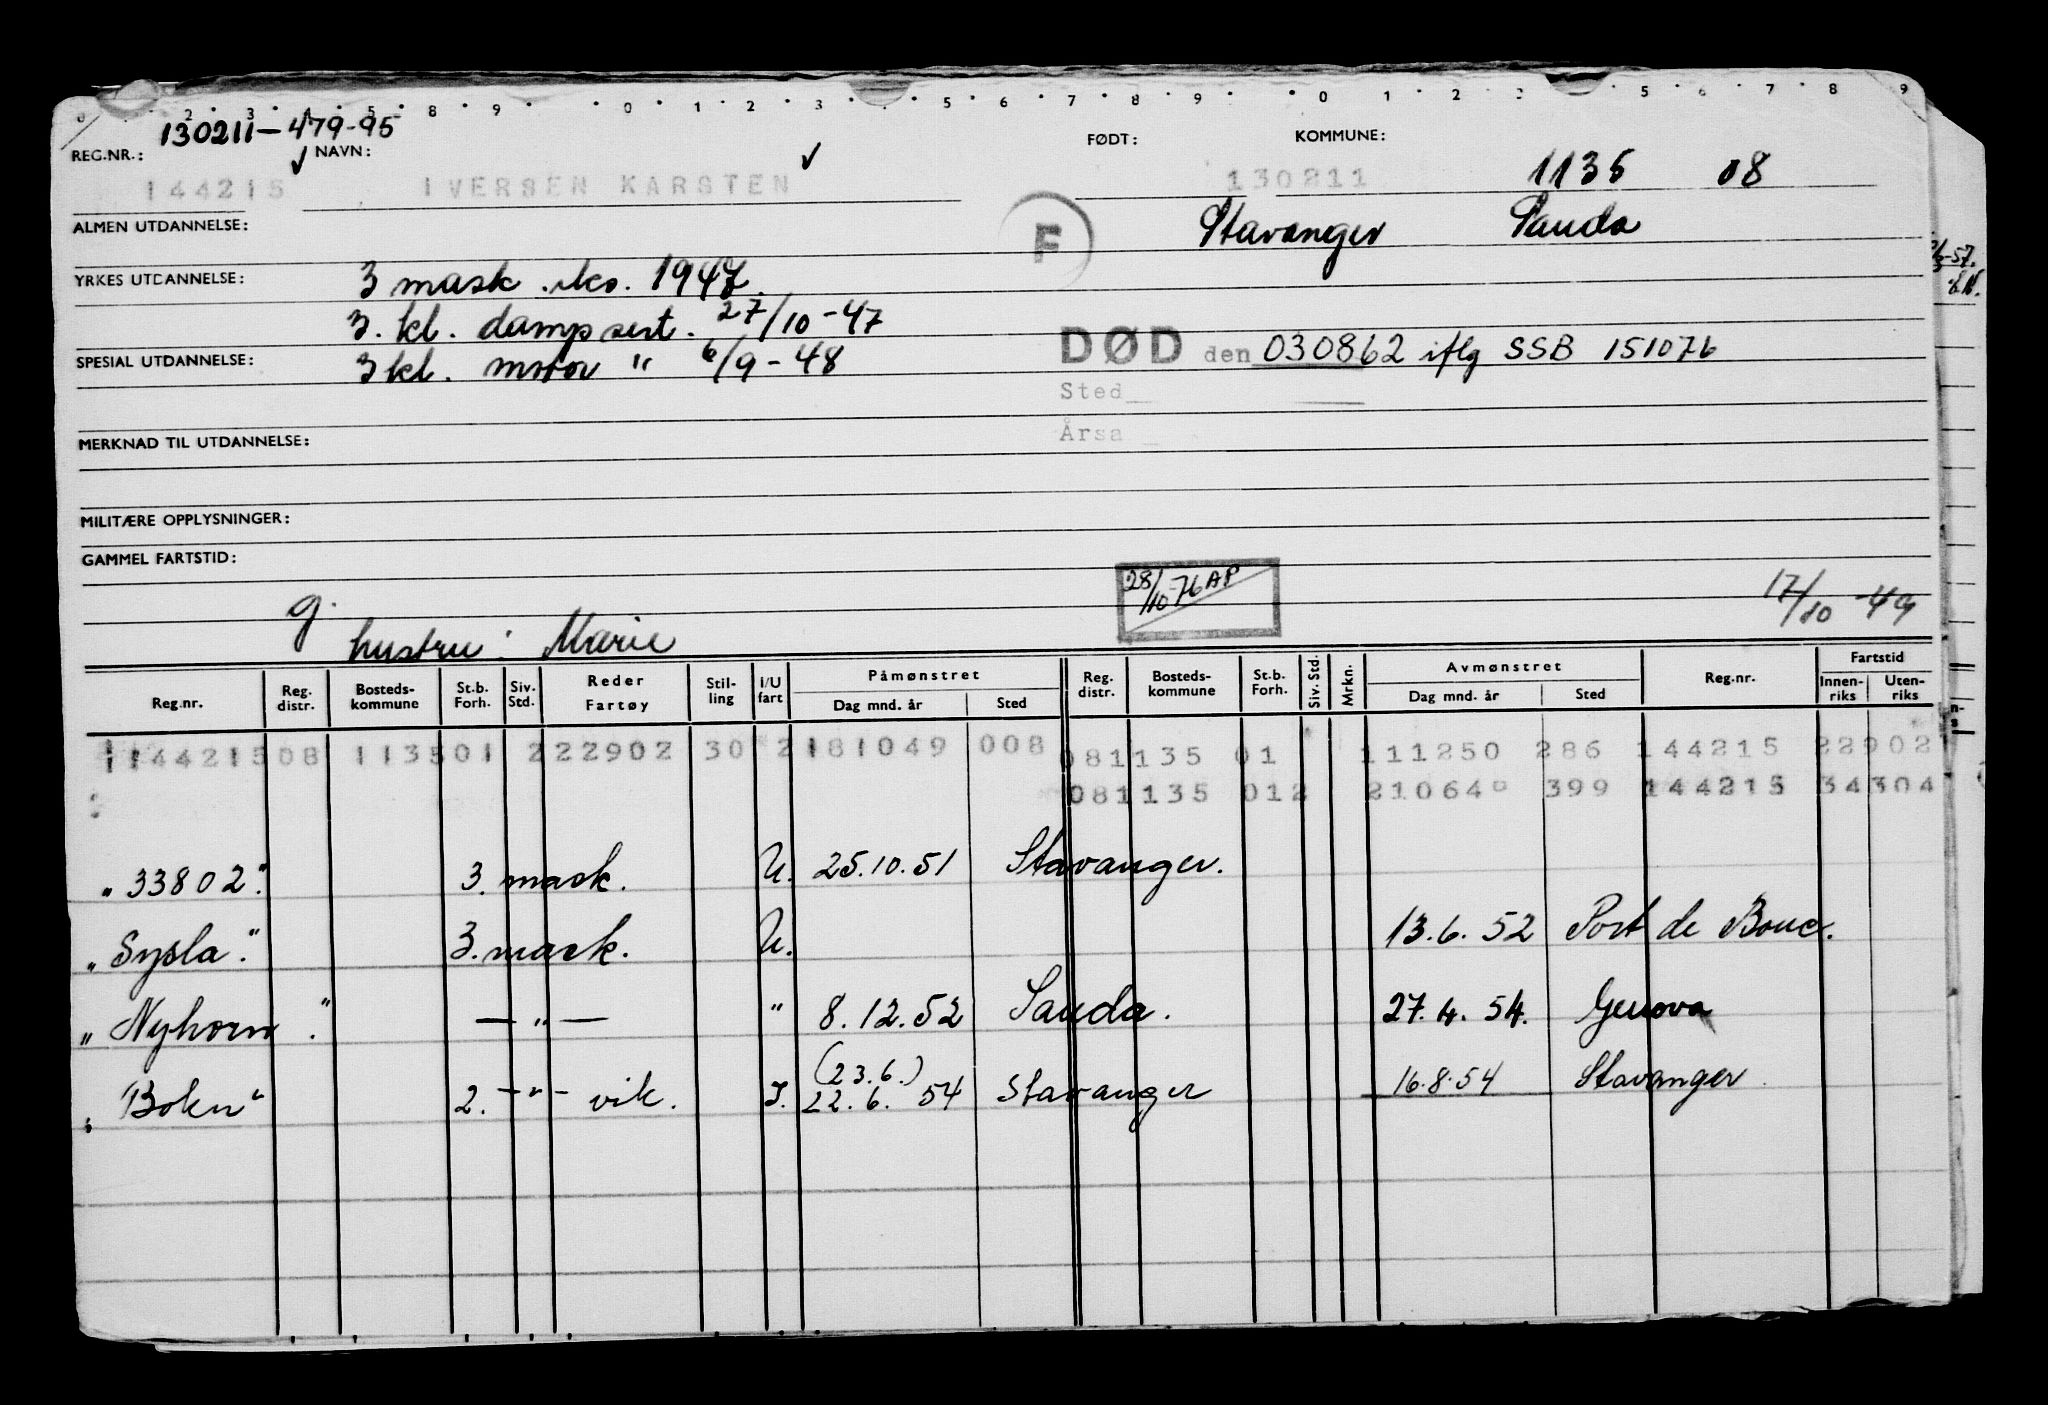 130211-479-95
REG.NR.: ✓ NAVN: ✓ FØDT: KOMMUNE:
144215 IVERSEN KARSTEN 130211 1135 08
ALMEN UTDANNELSE: F Stavanger Sauda
YRKES UTDANNELSE: 3 mask. sko. 1947.
3. kl. damp sert. 27/10-47
SPESIAL UTDANNELSE: 3 kl. motor " 6/9-48 DØD den 030862 iflg SSB 151076
Sted
Årsa
MERKNAD TIL UTDANNELSE:
MILITÆRE OPPLYSNINGER:
GAMMEL FARTSTID:
28/10-76 AP 17/10-49
g. hustru: Marie
Reg.nr. Reg. distr. Bosteds-kommune St.b. Forh. Siv. Std. Reder Fartøy Stil-ling I/U fart Påmønstret Dag mnd. år Sted Reg. distr. Bosteds-kommune St.b. Forh. Siv. Std. Mrkn. Avmønstret Dag mnd. år Sted Reg.nr. Fartstid Innen-riks Uten-riks
114421508 113501 222902 30 2181049 008 081135 01 111250 286 144215 22902
081135 012 210640 399 144215 34304
"33802". 3. mask. U. 25.10.51 Stavanger.
"Sysla". 3. mask. U. 13.6.52 Port de Bouc.
"Nyhorn". — " — " 8.12.52 Sauda. 27.4.54. Genova
(23.6.)
"Bokn" 2. — " — vik. I. 22.6.54 Stavanger 16.8.54 Stavanger